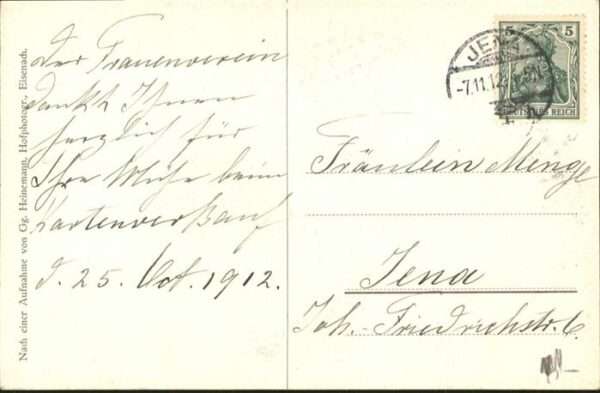 Der Frauenverein
dankt Ihnen
herzlich für
Ihre Mühe beim
Kartenverkauf
d. 25. Oct. 1912.
Nach einer Aufnahme von Gg. Heinemann, Hofphotogr., Eisenach.
JENA
-7.11.12
5 5
DEUTSCHES REICH
Fräulein Menge
Jena
Joh.-Friedrichstr. 6